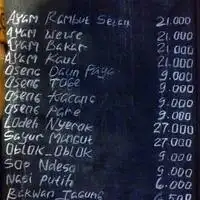 Ayam Rambut Setan 21.000
Ayam Wewe 21.000
Ayam Bakar 21.000
Ayam Kaul 21.000
Oseng Daun Paya 9.000
Oseng Toge 9.000
Oseng Kacang 9.000
Oseng Pare 9.000
Lodeh Nyerok 27.000
Sayur Mangut 27.000
Oblok_Oblok 9.000
Sop Ndeso 9.000
Nasi Putih 6.000
Bakwan Jagung 6.500